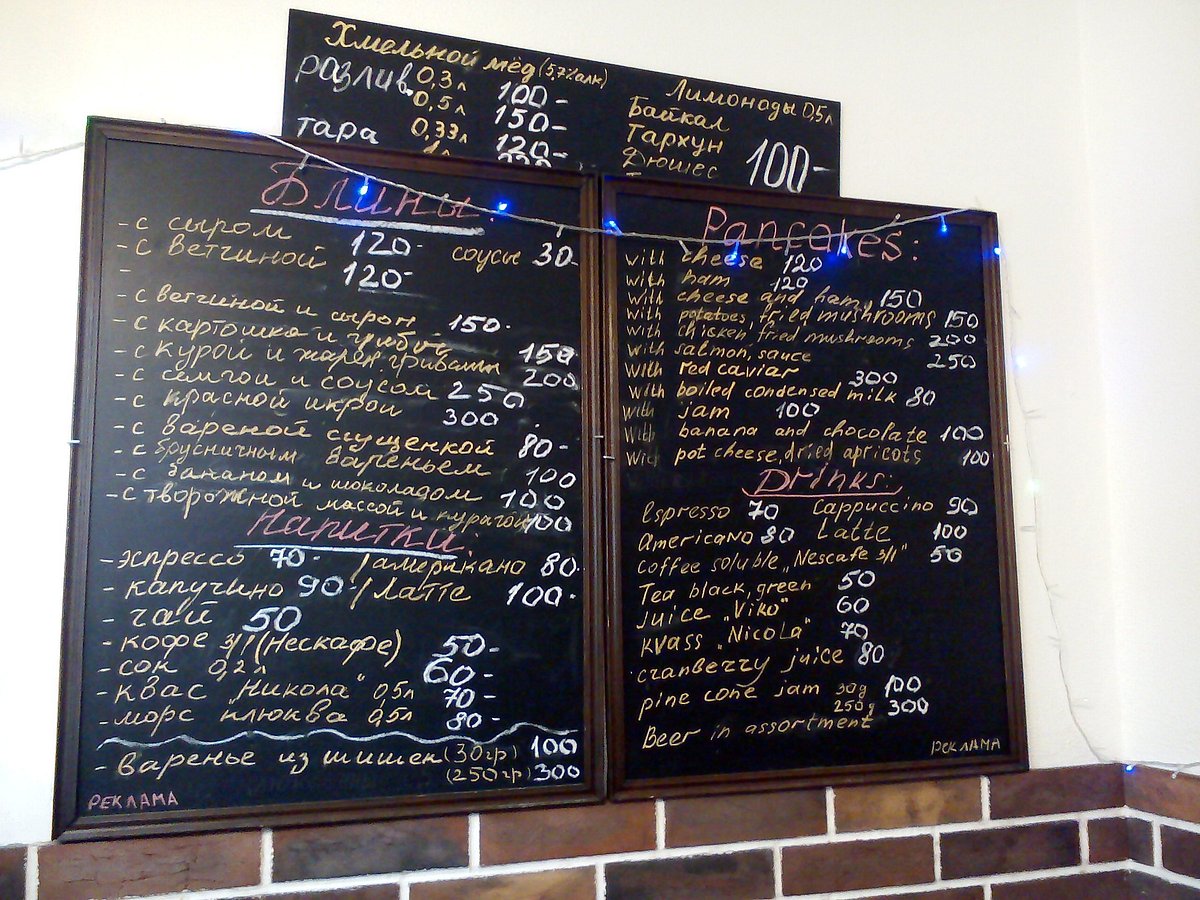 Хмельной мёд (5,7% алк)
разлив 0,3 л 100-
0,5 л 150-
тара 0,33 л 120-
1 л
Лимонады 0,5 л
Байкал
Тархун 100-
Дюшес
Блины:
- с сыром 120-
- с ветчиной соусы 30-
- 120-
- с ветчиной и сыром 150-
- с картошка и грибы 150
- с курой и жарен. грибами 200
- с семгой и соусом 250
- с красной икрой 300
- с вареной сгущенкой 80-
- с брусничным вареньем 100
- с бананом и шоколадом 100
- с творожной массой и курагой 100
Напитки:
- эспрессо 70- / американо 80-
- капучино 90- / Латте 100-
- чай 50
- кофе 3/1 (Нескафе) 50-
- сок 0,2 л 60-
- квас "Никола" 0,5л 70-
- морс клюква 0,5л 80-
- варенье из шишек (30гр) 100
(250гр) 300
РЕКЛАМА
Pancakes:
with cheese 120
with ham 120
with cheese and ham 150
with potatoes, fried mushrooms 150
with chicken, fried mushrooms 200
with salmon, sauce 250
with red caviar 300
with boiled condensed milk 80
with jam 100
with banana and chocolate 100
with pot cheese, dried apricots 100
Drinks:
Espresso 70 Cappuccino 90
Americano 80 Latte 100
coffee soluble „Nescafe 3/1" 50
Tea black, green 50
juice „Viko" 60
kvass „Nicola" 70
cranberry juice 80
pine cone jam 30g 100
250g 300
Beer in assortment
РЕКЛАМА